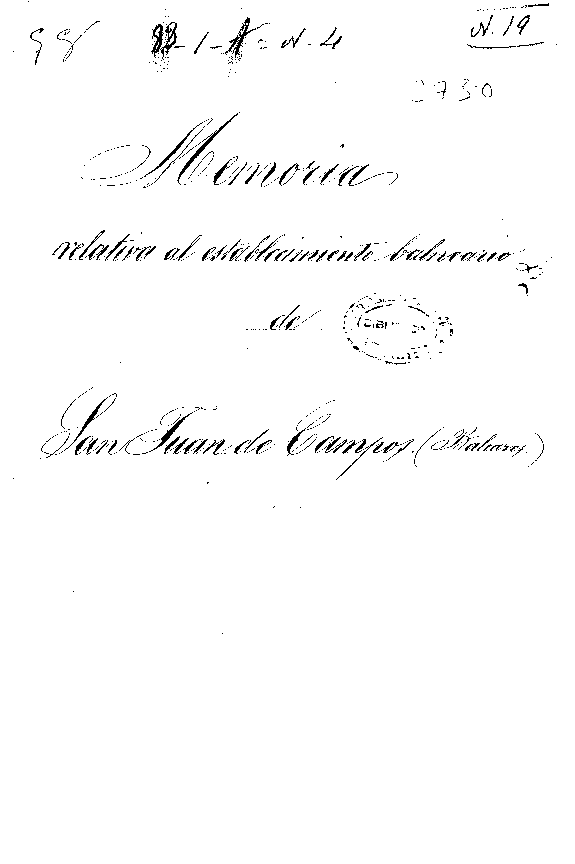 98 1 - N. 4
N. 19
2730
Memoria
relativa al establecimiento balneario
de
San Juan de Campos. (Baleares.)